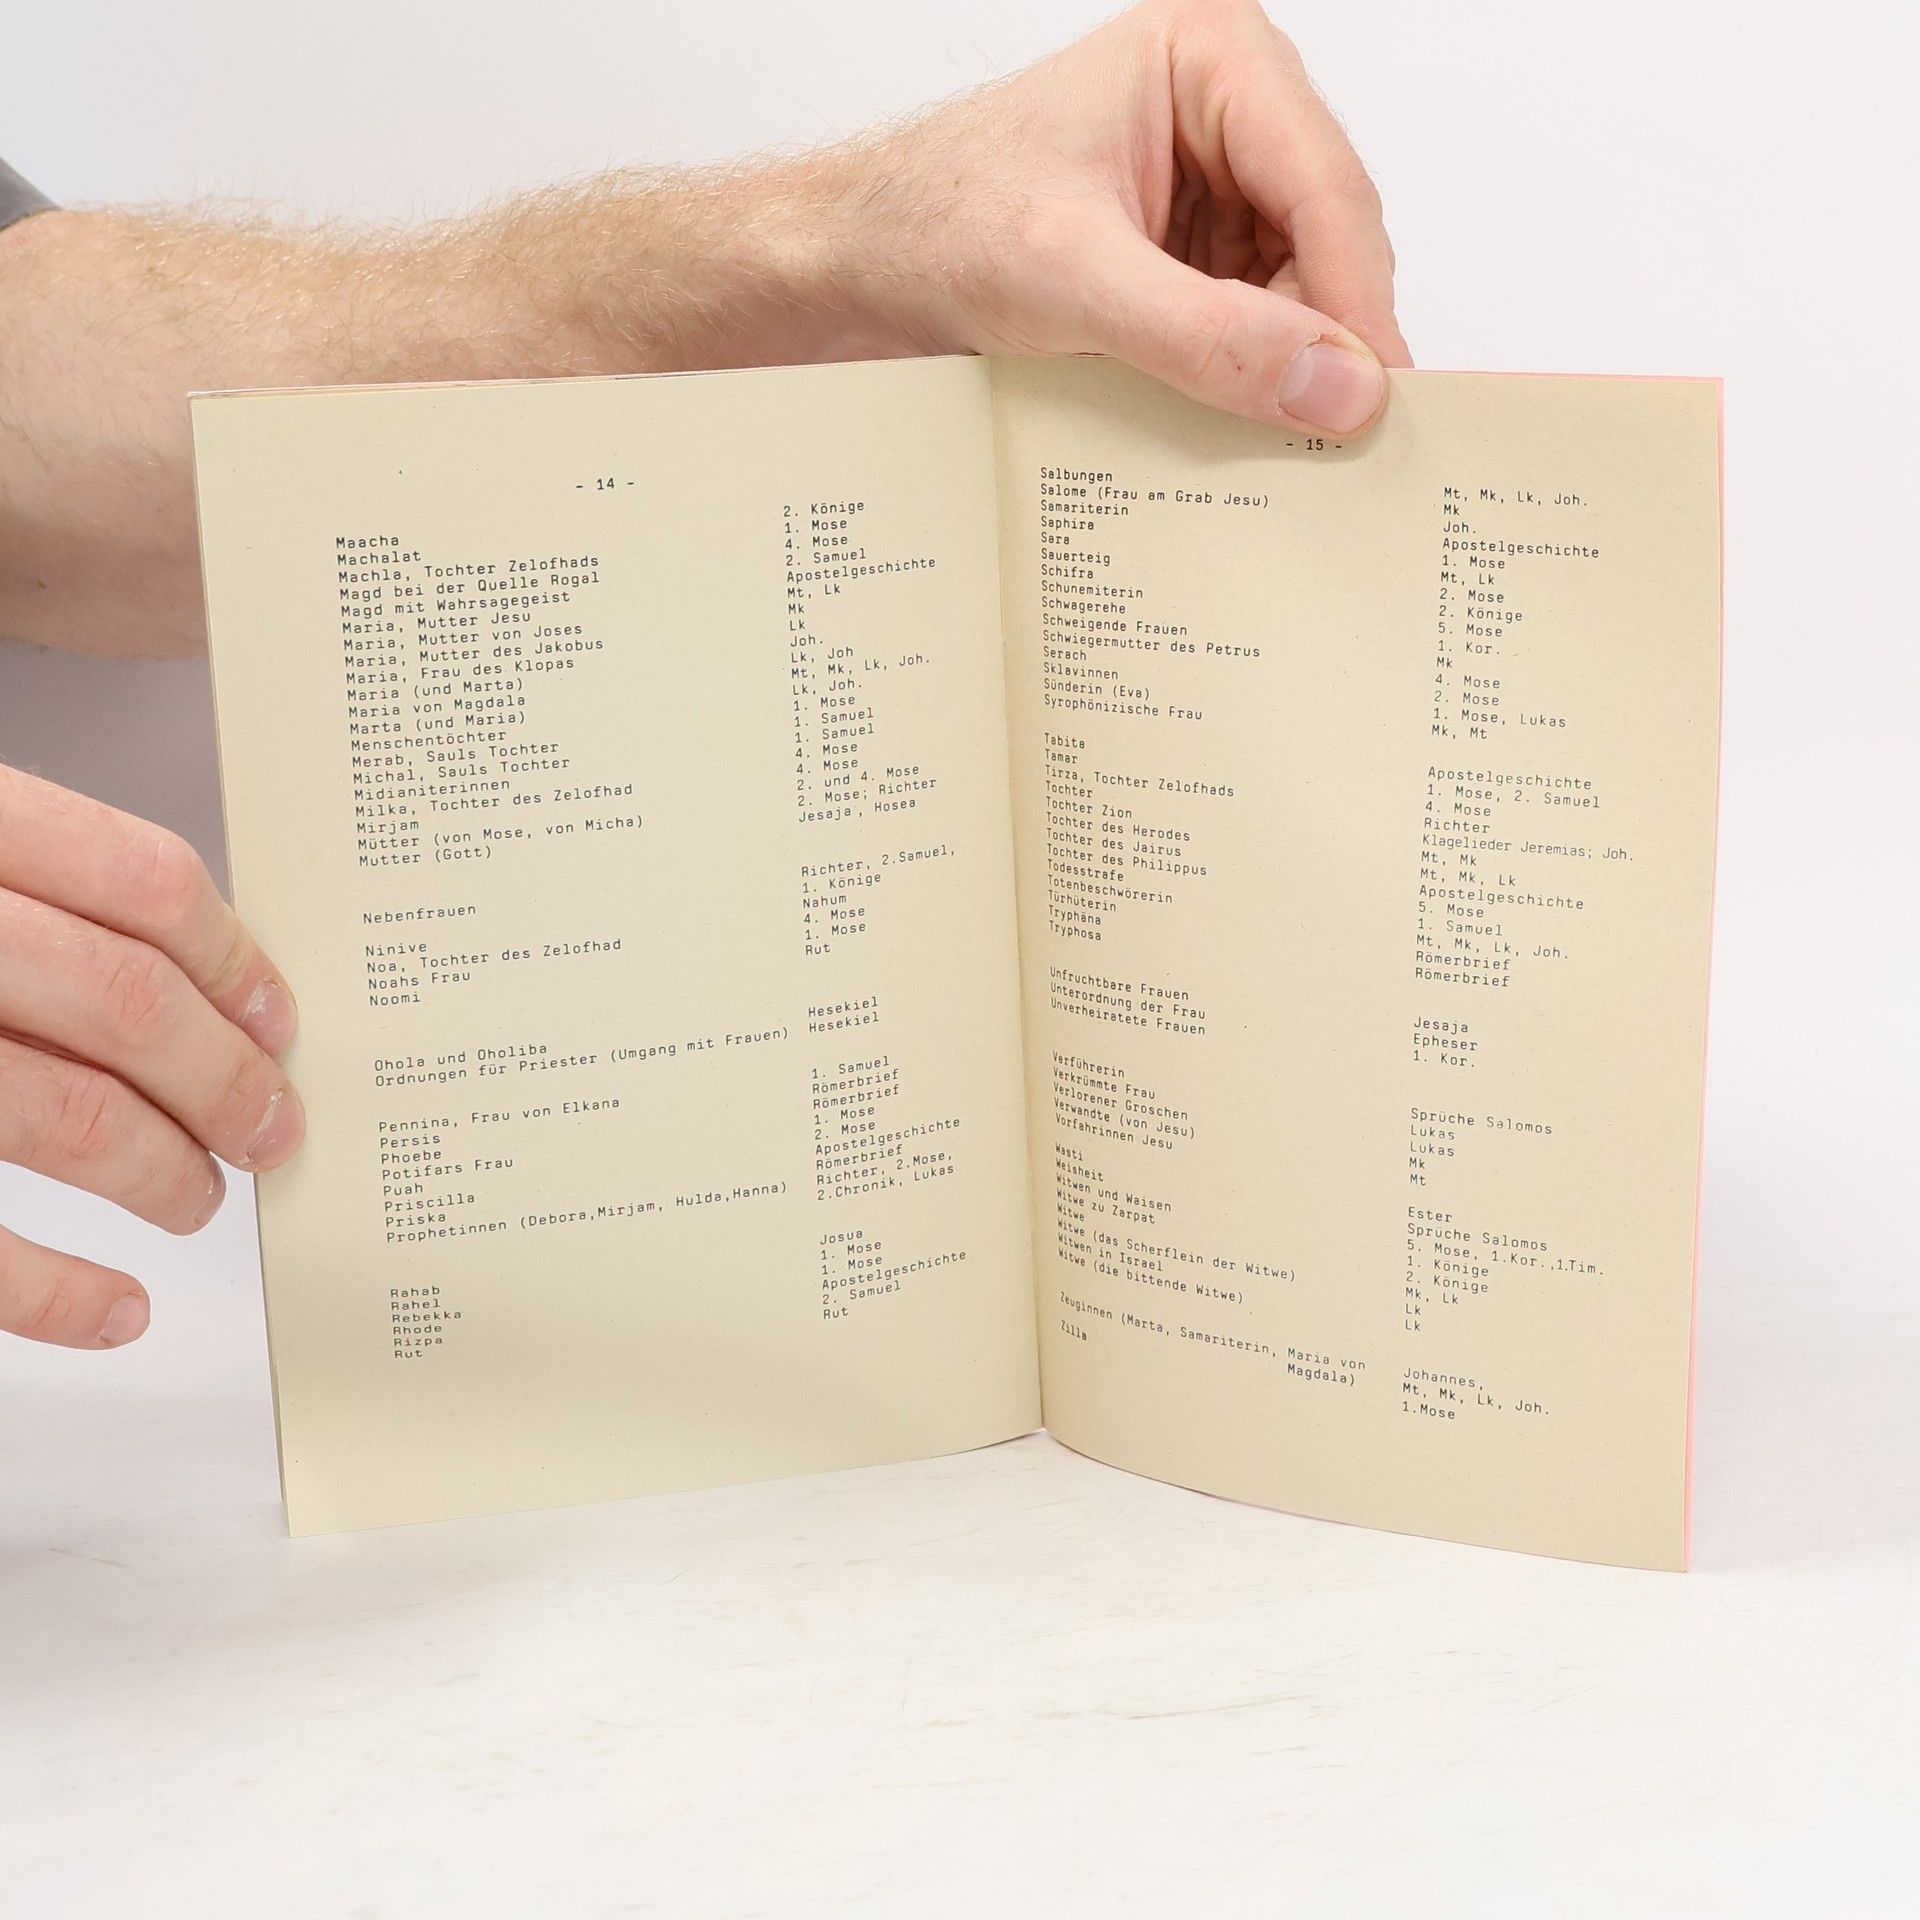 - 14 -
Maacha 2. Könige
Machalat 1. Mose
Machla, Tochter Zelofhads 4. Mose
Magd bei der Quelle Rogal 2. Samuel
Magd mit Wahrsagegeist Apostelgeschichte
Maria, Mutter Jesu Mt, Lk
Maria, Mutter von Joses Mk
Maria, Mutter des Jakobus Lk
Maria, Frau des Klopas Joh.
Maria (und Marta) Lk, Joh
Maria von Magdala Mt, Mk, Lk, Joh.
Marta (und Maria) Lk, Joh.
Menschentöchter 1. Mose
Merab, Sauls Tochter 1. Samuel
Michal, Sauls Tochter 1. Samuel
Midianiterinnen 4. Mose
Milka, Tochter des Zelofhad 4. Mose
Mirjam 2. und 4. Mose
Mütter (von Mose, von Micha) 2. Mose; Richter
Mutter (Gott) Jesaja, Hosea
Nebenfrauen Richter, 2.Samuel,
1. Könige
Ninive Nahum
Noa, Tochter des Zelofhad 4. Mose
Noahs Frau 1. Mose
Noomi Rut
Ohola und Oholiba Hesekiel
Ordnungen für Priester (Umgang mit Frauen) Hesekiel
Pennina, Frau von Elkana 1. Samuel
Persis Römerbrief
Phoebe Römerbrief
Potifars Frau 1. Mose
Puah 2. Mose
Priscilla Apostelgeschichte
Priska Römerbrief
Prophetinnen (Debora,Mirjam, Hulda,Hanna) Richter, 2.Mose,
2.Chronik, Lukas
Rahab Josua
Rahel 1. Mose
Rebekka 1. Mose
Rhode Apostelgeschichte
Rizpa 2. Samuel
Rut Rut
- 15 -
Salbungen Mt, Mk, Lk, Joh.
Salome (Frau am Grab Jesu) Mk
Samariterin Joh.
Saphira Apostelgeschichte
Sara 1. Mose
Sauerteig Mt, Lk
Schifra 2. Mose
Schunemiterin 2. Könige
Schwagerehe 5. Mose
Schweigende Frauen 1. Kor.
Schwiegermutter des Petrus Mk
Serach 4. Mose
Sklavinnen 2. Mose
Sünderin (Eva) 1. Mose, Lukas
Syrophönizische Frau Mk, Mt
Tabita Apostelgeschichte
Tamar 1. Mose, 2. Samuel
Tirza, Tochter Zelofhads 4. Mose
Tochter Richter
Tochter Zion Klagelieder Jeremias; Joh.
Tochter des Herodes Mt, Mk
Tochter des Jairus Mt, Mk, Lk
Tochter des Philippus Apostelgeschichte
Todesstrafe 5. Mose
Totenbeschwörerin 1. Samuel
Türhüterin Mt, Mk, Lk, Joh.
Tryphäna Römerbrief
Tryphosa Römerbrief
Unfruchtbare Frauen Jesaja
Unterordnung der Frau Epheser
Unverheiratete Frauen 1. Kor.
Verführerin Sprüche Salomos
Verkrümmte Frau Lukas
Verlorener Groschen Lukas
Verwandte (von Jesu) Mk
Vorfahrinnen Jesu Mt
Wasti Ester
Weisheit Sprüche Salomos
Witwen und Waisen 5. Mose, 1.Kor.,1Tim.
Witwe zu Zarpat 1. Könige
Witwe 2. Könige
Witwe (das Scherflein der Witwe) Mk, Lk
Witwen in Israel Lk
Witwe (die bittende Witwe) Lk
Zeuginnen (Marta, Samariterin, Maria von Johannes,
Magdala) Mt, Mk, Lk, Joh.
Zilla 1.Mose